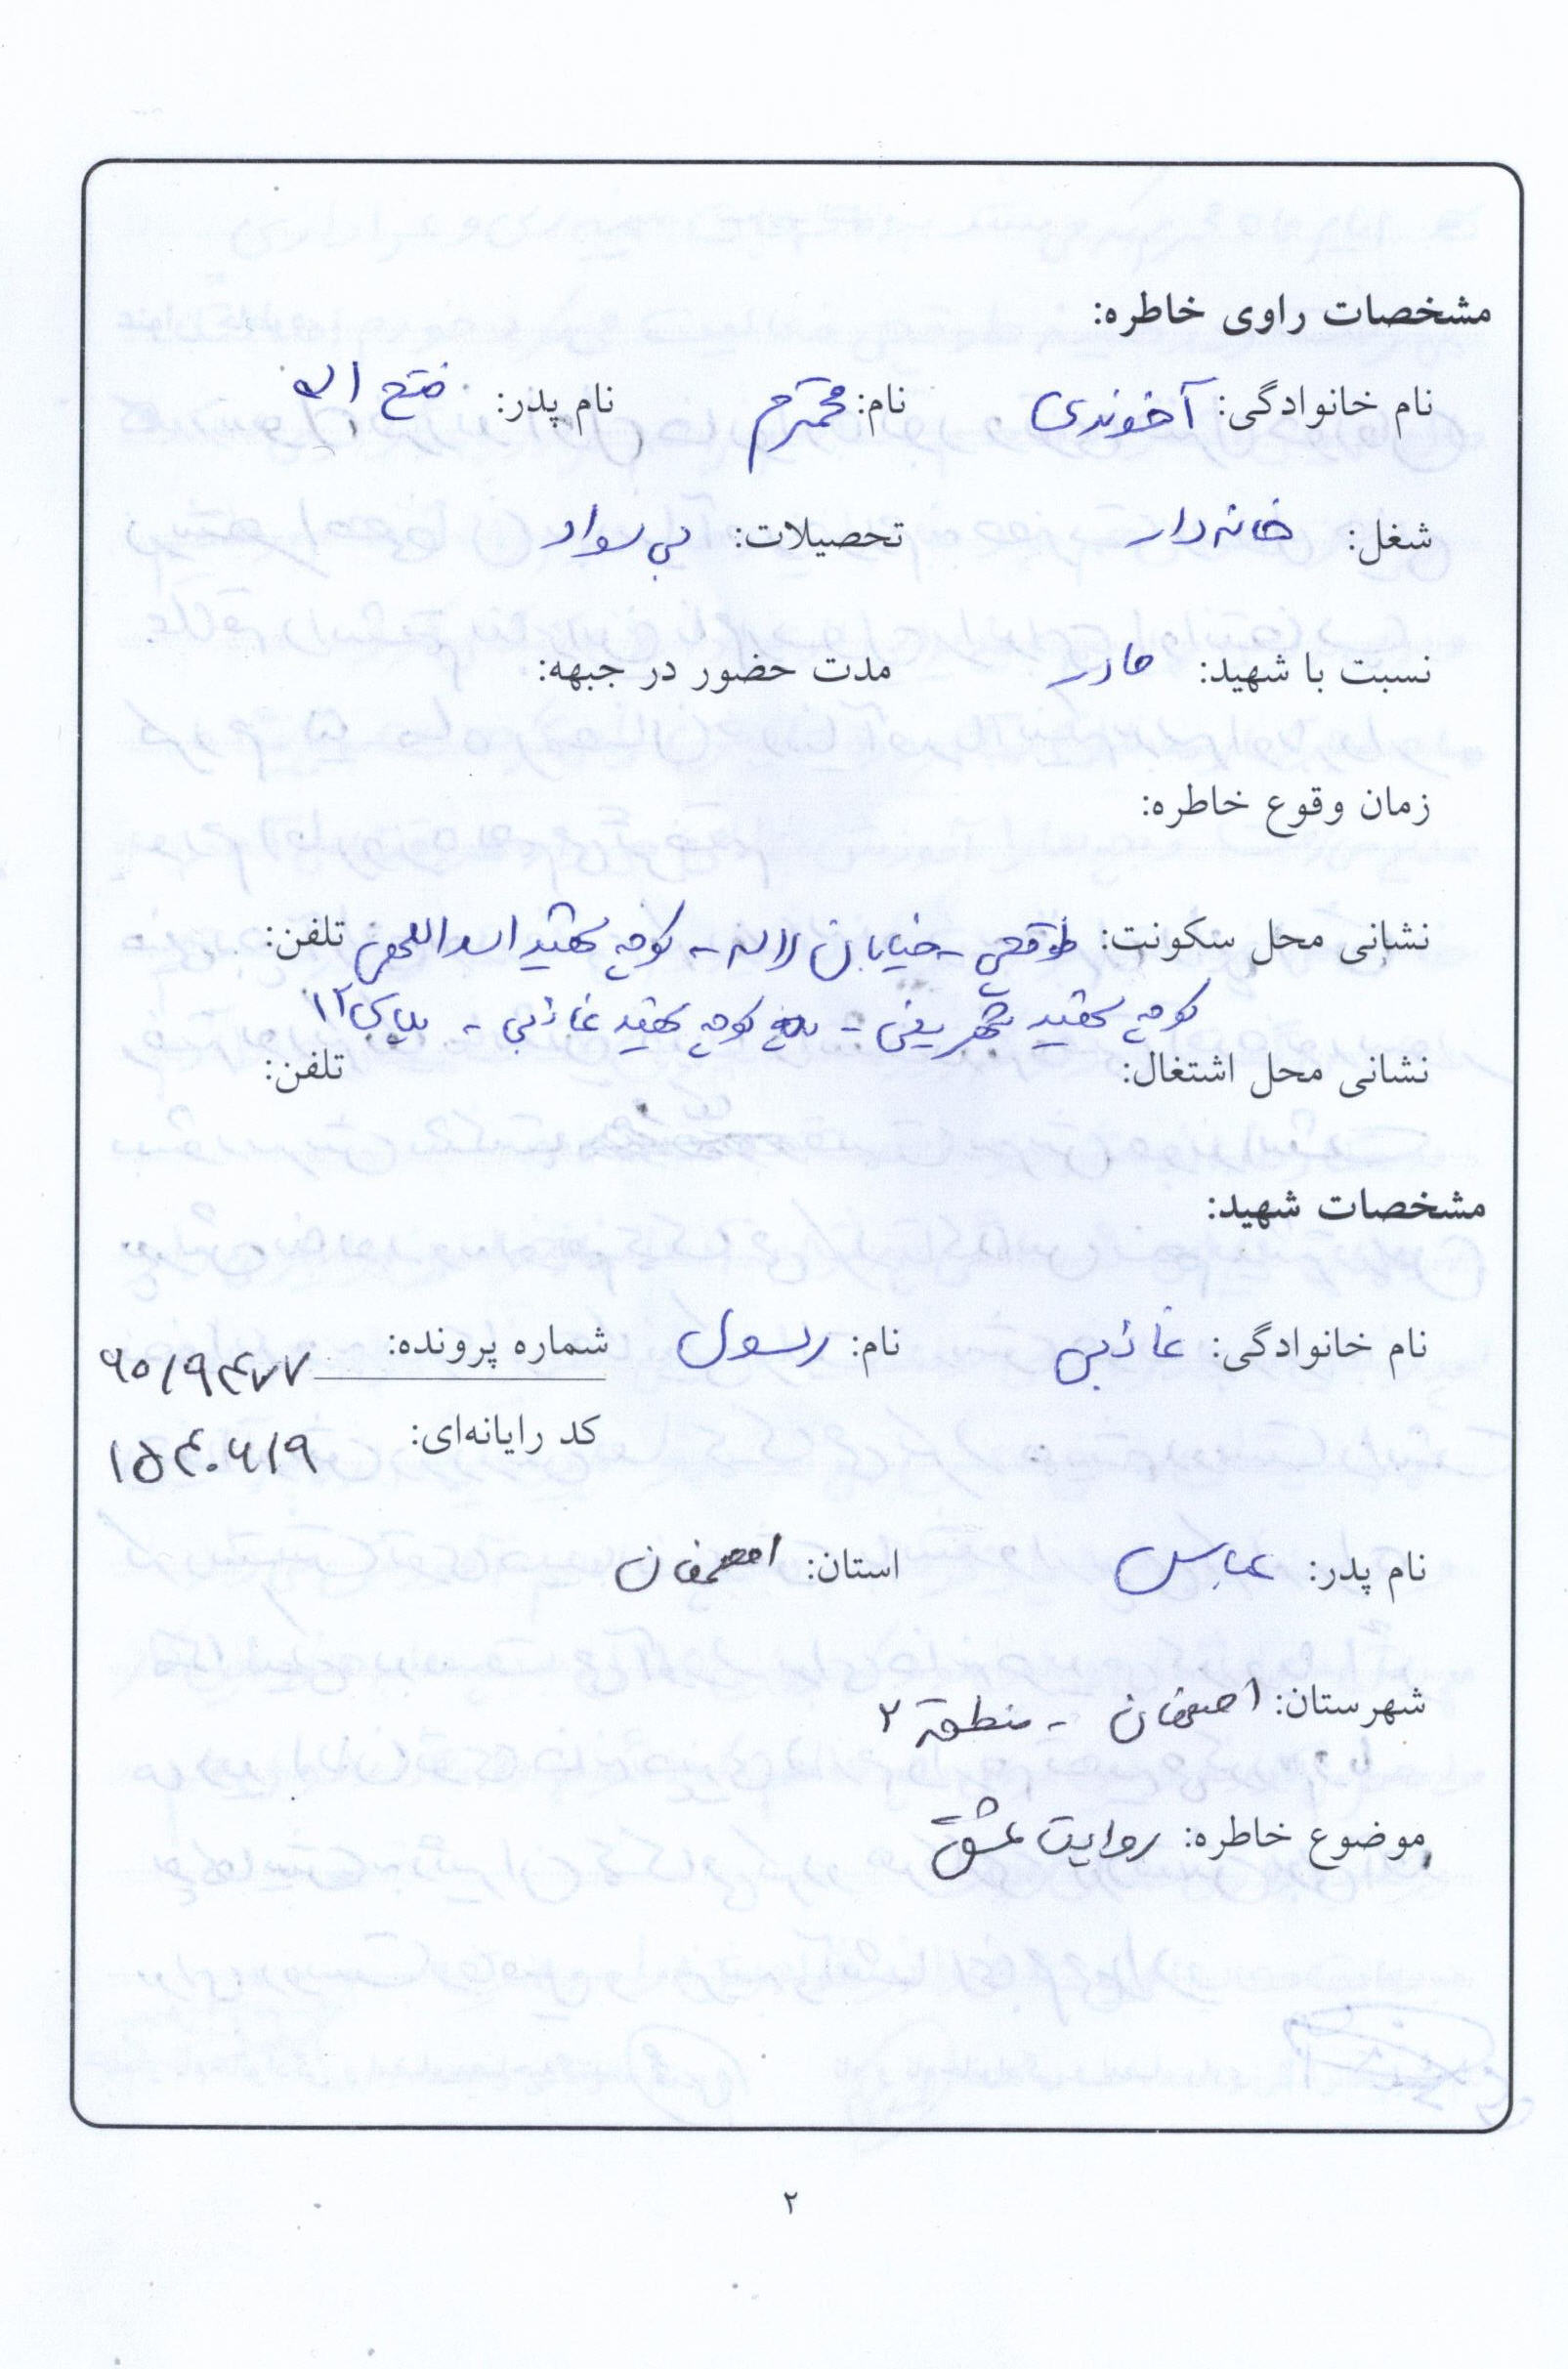 مشخصات راوی خاطره:
نام خانوادگی: آخوندی نام: محترم نام پدر: فتح اله
شغل: خانه دار تحصیلات: بی سواد
نسبت با شهید: مادر مدت حضور در جبهه:
زمان وقوع خاطره:
نشانی محل سکونت: طوقچی - خیابان لاله - کوچه شهید اسداللهی تلفن:
کوچه شهید - کوچه شهید غازبی - پلاک ۱۲
نشانی محل اشتغال: تلفن:
مشخصات شهید:
نام خانوادگی: غازبی نام: رسول شماره پرونده: ۶۵/۹۴۷۷
کد رایانه‌ای: ۱۵۴۰۶۱۹
نام پدر: عباس استان: اصفهان
شهرستان: اصفهان - منطقه ۲
موضوع خاطره: روایت عشق
۲